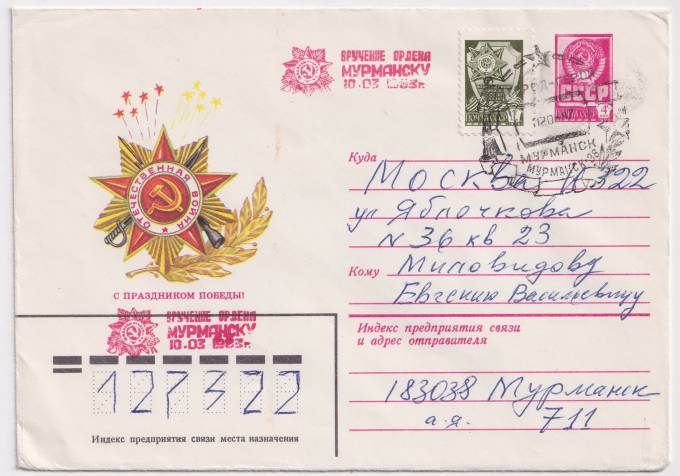 ВРУЧЕНИЕ ОРДЕНА
МУРМАНСКУ
10.03 1983г.
ПОЧТА СССР
СССР
4к
МУРМАНСК
МУРМАНСК-38
ОТЕЧЕСТВЕННАЯ ВОЙНА
С ПРАЗДНИКОМ ПОБЕДЫ!
Куда
Москва
ул Яблочкова
N 36 кв 23
Кому
Миловидову
Евгению Васильевичу
ВРУЧЕНИЕ ОРДЕНА
МУРМАНСКУ
10.03 1983г.
Индекс предприятия связи
и адрес отправителя
127322
183038 Мурманск
а.я. 711
Индекс предприятия связи места назначения